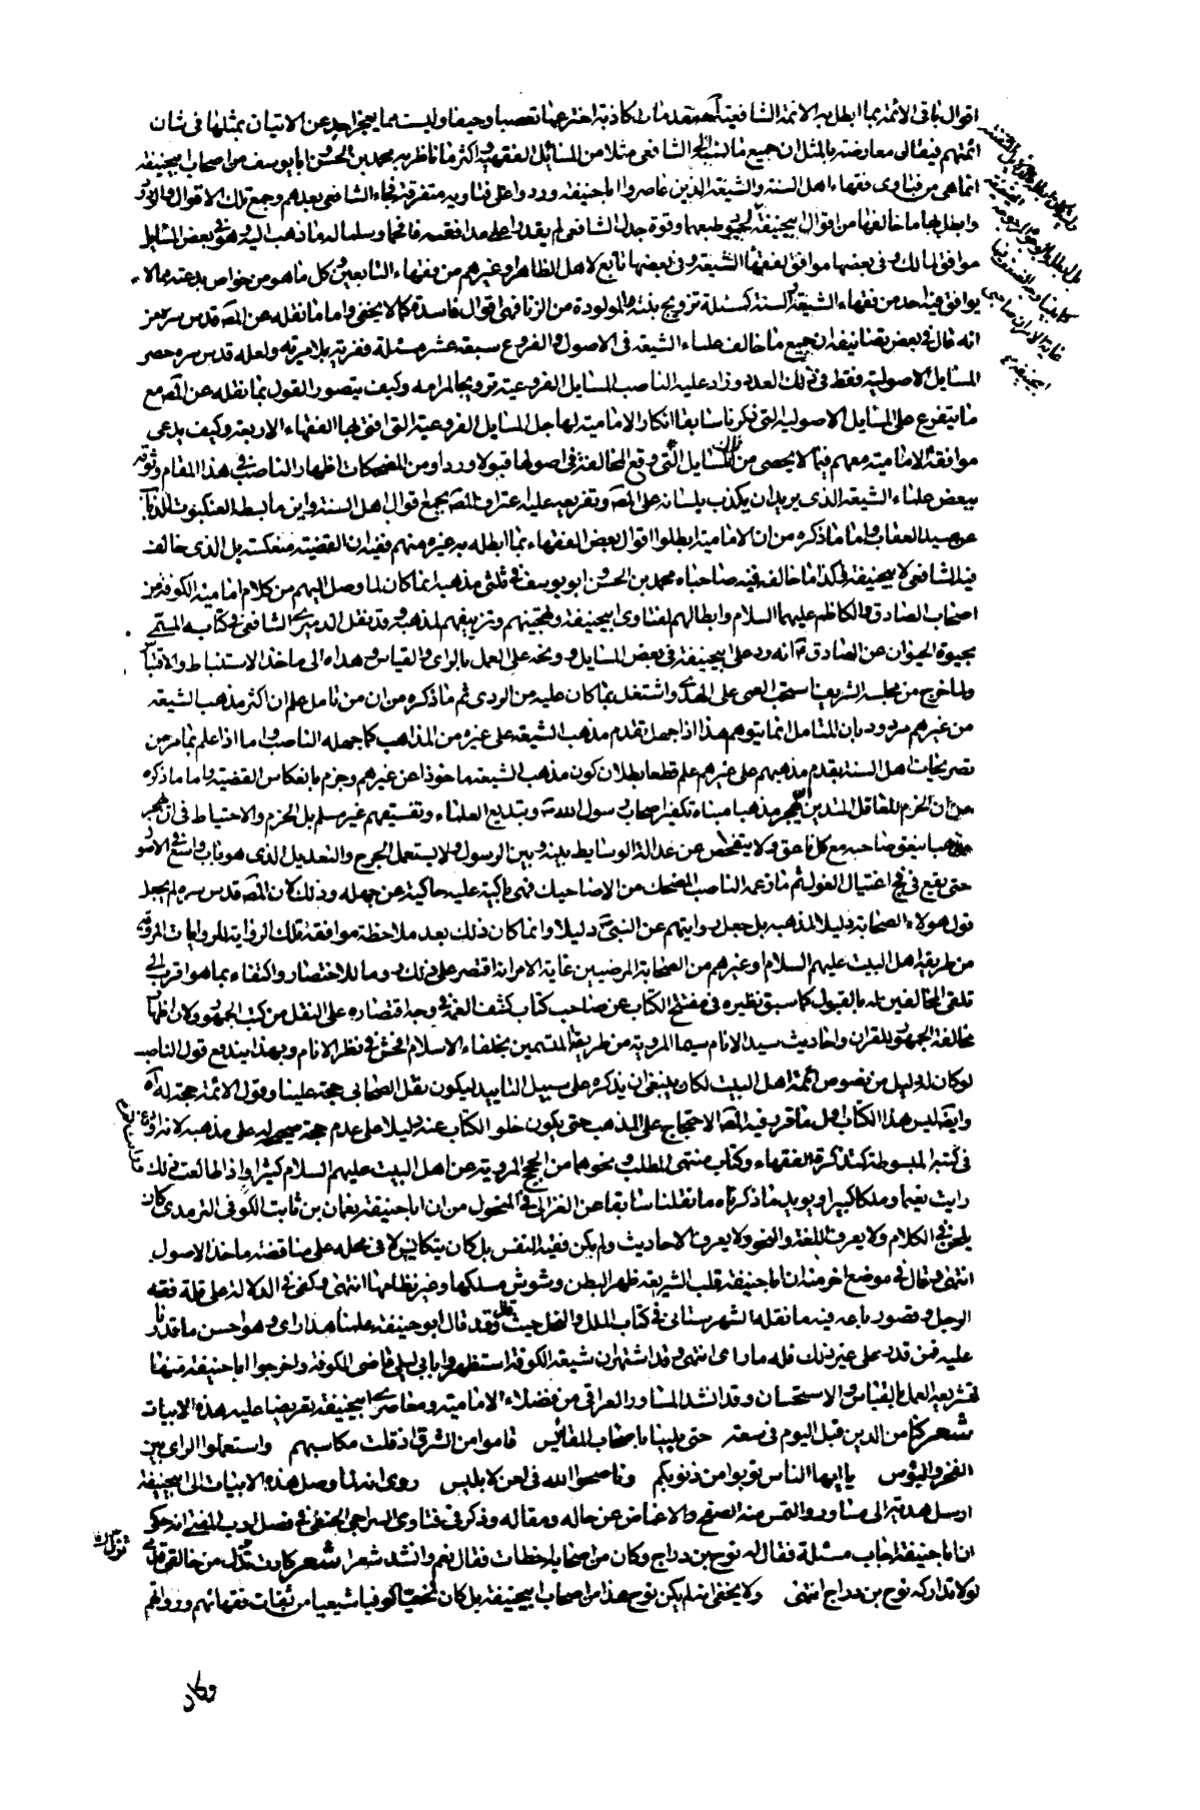 اقوال باقي الائمة بما ابطل به الائمة الشافعية مقدمات كاذبة اخترعها تعصبا وحيفا وليست مما يعجز احد عن الاتيان بمثلها في شان
ائمتهم فيقال معارضة بالمثل ان جميع ما نسب الى الشافعي مثلا من المسائل الفقهية واكثر ما ناظر به محمد بن الحسن وابا يوسف من اصحاب ابيحنيفة
انما هي من فتاوى فقهاء اهل السنة والشيعة الذين عاصروا اباحنيفة وردوا على فتاويه متفرقة فجاء الشافعي بعدهم وجمع تلك الاقوال
وابطل بها ما خالفها من اقوال ابيحنيفة وقوة جدل الشافعي لم يقدروا على مدافعته فافحموا وسلموا له ما ذهب اليه وهو في بعض المسائل
موافق لمالك وفي بعضها موافق لفقهاء الشيعة وفي بعضها تابع لاهل الظاهر او غيرهم من فقهاء التابعين وكل ما هو من خواص بدعته مما لا
يوافق فيه احد من فقهاء الشيعة والسنة كمسئلة تزويج بنته المولودة من الزنا فهي اقوال فاسدة كما لا يخفى واما ما نقله عن المص قدس سره من
انه قال في بعض تصانيفه ان جميع ما خالف علماء الشيعة في الاصول والفروع سبعة عشر مسئلة ففرية بلا مرية ولعله قدس سره حصر
المسايل الاصولية فقط في ذلك العدد وزاد عليه الناصب المسايل الفروعية ترويجا لمرامه وكيف يتصور القول بما نقله عن المص مع
ما يتفرع على المسايل الاصولية التي ذكرنا سابقا انكار الامامية لها جل المسايل الفروعية التي افتى بها الفقهاء الاربعة وكيف يدعي
موافقة الامامية معهم فيما لا يحصى من المسايل التي وقع المخالفة في اصولها قبولا وردا ومن المضحكات اظهار الناصب في هذا المقام وثوقه
ببعض علماء الشيعة الذي يريد ان يكذب بلسانه على المص وتفريعه عليه اعتراف المص بجمع اقوال اهل السنة واين ما بسط العنكبوت
عن صيد العقاب واما ما ذكره من ان الامامية ابطلوا اقوال بعض الفقهاء بما ابطله به غيره منهم ففيه ان القضية منعكسة بل الذي خالف
فيه الشافعي لابيحنيفة وكذا ما خالف فيه صاحباه محمد بن الحسن وابو يوسف في ثلثي مذهبه انما كان لما وصل اليهم من كلام امامية الكوفة من
اصحاب الصادق والكاظم عليهما السلام وابطالهم لفتاوى ابيحنيفة وتهجينهم وتزييفهم لمذهبه وقد نقل الدميري الشافعي في كتابه المسمى
بحيوة الحيوان عن الصادق انه رد على ابيحنيفة في بعض المسايل ووبخه على العمل بالراي والقياس وهداه الى ماخذ الاستنباط والاقتباس
ولما خرج من مجلسه الشريف استحب العمى على الهدى واشتغل بما كان عليه من الردى ثم ما ذكره من ان من تامل علم ان اكثر مذهب الشيعة
من غيرهم مردود بان المتامل انما يتوهم هذا اذا جهل تقدم مذهب الشيعة على غيره من المذاهب كما جهله الناصب واما اذا علم بما مر من
تصريحات اهل السنة بتقدم مذهبهم على غيرهم علم قطعا بطلان كون مذهب الشيعة ماخوذا عن غيرهم وجزم بانعكاس القضية واما ما ذكره
من ان الحزم للعاقل المتدين ان يهجر مذهبا مبناه تكفير اصحاب رسول الله وتبديع العلماء وتفسيقهم غير مسلم بل الحزم والاحتياط في ان يهجر
مذهبا ينعق صاحبه مع كل ناعق ولا يتفحص عن عدالة الوسايط بينه وبين الرسول ولا يستعمل الجرح والتعديل الذي هو باب واسع في الاصول
حتى يقع في فخ اغتيال الغول ثم ما زعمه الناصب المضحك من الاضاحيك فهي باكية عليه حاكية عن جهله وذلك لان المص قدس سره لم يجعل
قول هؤلاء الصحابة دليلا لمذهبه بل جعل روايتهم عن النبي دليلا وانما كان ذلك بعد ملاحظة موافقة تلك الرواية للروايات المروية
من طريقة اهل البيت عليهم السلام او غيرهم من الصحابة المرضيين غاية الامر انه اقتصر على ذلك روما للاختصار واكتفاء بما هو اقرب الى
تلقي المخالفين له بالقبول كما سبق نظيره في مفتتح الكتاب عن صاحب كتاب كشف الغمة في وجه اقتصاره على النقل من كتب الجمهور ولان اظهار
مخالفة الجمهور للقران واحاديث سيد الانام سيما المروية من طريقة المتسمين بخلفاء الاسلام افحش في نظر الانام وبهذا يندفع قول الناصب
لو كان له دليل من نصوص ائمة اهل البيت لكان ينبغي ان يذكره على سبيل التاييد ليكون نقل الصحابي حجة علينا وقول الائمة حجة له آه
وايضا ليس هذا الكتاب اول ما قرر فيه المص الاحتجاج على المذهب حتى يكون خلو الكتاب عنه دليلا على عدم حجة صحيحة له على مذهبه لانه اودع
في كتبه المبسوطة كتذكرة الفقهاء وكتاب منتهى المطلب ونحوها من الحجج المروية عن اهل البيت عليهم السلام كثيرا واذا طالعت ذلك
رايت نعيما وملكا كبيرا ويؤيد ما ذكرناه ما نقلنا سابقا عن الغزالي في المنخول من ان اباحنيفة نعمان بن ثابت الكوفي الترمدي كان
يلحن في الكلام ولا يعرف اللغة والنحو ولا يعرف الاحاديث ولم يكن فقيه النفس بل كان يتكايس لا في محله على مناقضة ماخذ الاصول
انتهى وقال في موضع اخر منه ان اباحنيفة قلب الشريعة ظهر البطن وشوش مسلكها وغير نظامها انتهى وكفى في الدلالة على قلة فقه
الرجل وقصور باعه فيه ما نقله الشهرستاني في كتاب الملل والنحل حيث قال وقد قال ابو حنيفة علمنا هذا راي وهو احسن ما قدرنا
عليه فمن قدر على غير ذلك فله ما راى انتهى وقد اشتهر ان شيعة الكوفة استظهروا بابن ابي ليلى قاضي الكوفة واخرجوا اباحنيفة منها
لتشريعه العمل بالقياس والاستحسان وقد انشد المساور العراقي من فضلاء الامامية ومعاصري ابيحنيفة تعريضا عليه هذه الابيات
شعر كنا من الدين قبل اليوم في سعة حتى بلينا باصحاب المقائيس قاموا من السوق اذ قلت مكاسبهم واستعملوا الراي بين
الفقر والبؤس يا ايها الناس توبوا من ذنوبكم وناصحوا الله في لعن لابليس روى انه لما وصل هذه الابيات الى ابيحنيفة
ارسل هدية الى مساور والتمس منه الصفح والاغماض عن حاله ومقاله وذكر في فتاوى السراجي الحنفي في فصل ادب المفتي انه حكي
ان اباحنيفة اجاب مسئلة فقال له نوح بن دراج وكان من اصحابه اخطات فقال نعم وانشد شعرا شعر كادت تزل من حالق قدمي
لولا تداركه نوح بن دراج انتهى ولا يخفى انه لم يكن نوح هذا من اصحاب ابيحنيفة بل كان نخعيا كوفيا شيعيا من ثقات فقهائهم ورواتهم
وكان